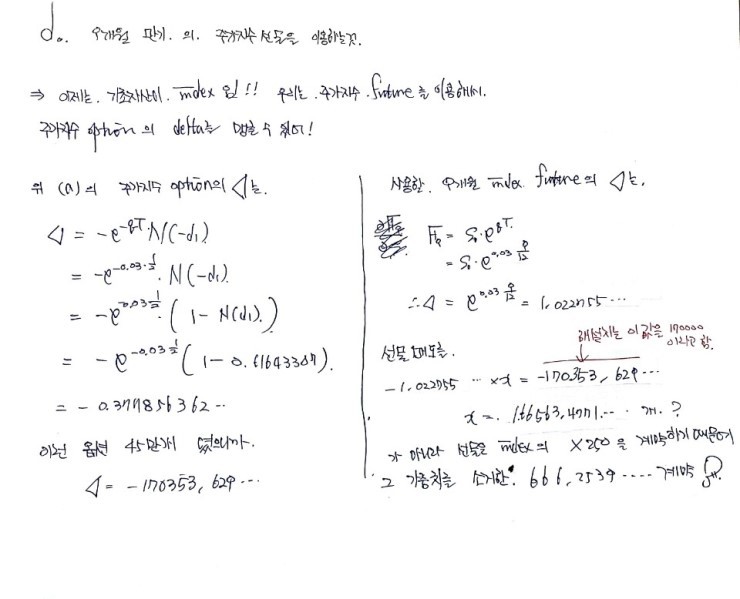 d. 9개월 만기의 주가지수 선물을 이용하는것.
⇒ 이제는. 기초자산이. index 임!! 우리는. 주가지수. future를 이용해서.
주가지수 option의 delta를 맞출 수 있어!
위 (a)의 주가지수 option의 Δ는.
Δ = -e^{-qT}·N(-d₁)
= -e^{-0.03·½}·N(-d₁)
= -e^{-0.03·½}·(1-N(d₁).)
= -e^{-0.03·½}(1-0.61643307).
= -0.377856362··
이런 옵션 45만개 였으니까.
Δ = -170353, 629···
사용한. 9개월 index future의 Δ는.
= S₀·e^{qT.}
= S₀·e^{0.03 9/12}
∴Δ = e^{0.03 9/12} = 1.022755···
해설지는 이 값을 170000
이라고 함.
선물 매도를.
-1.022755 ··· × x = -170353, 629···
x =. 166563,4771··· 개. ?
가 아니라 선물은 index의 ×250 을 계약하기 때문에
그 가중치를 666,2539···· 계약